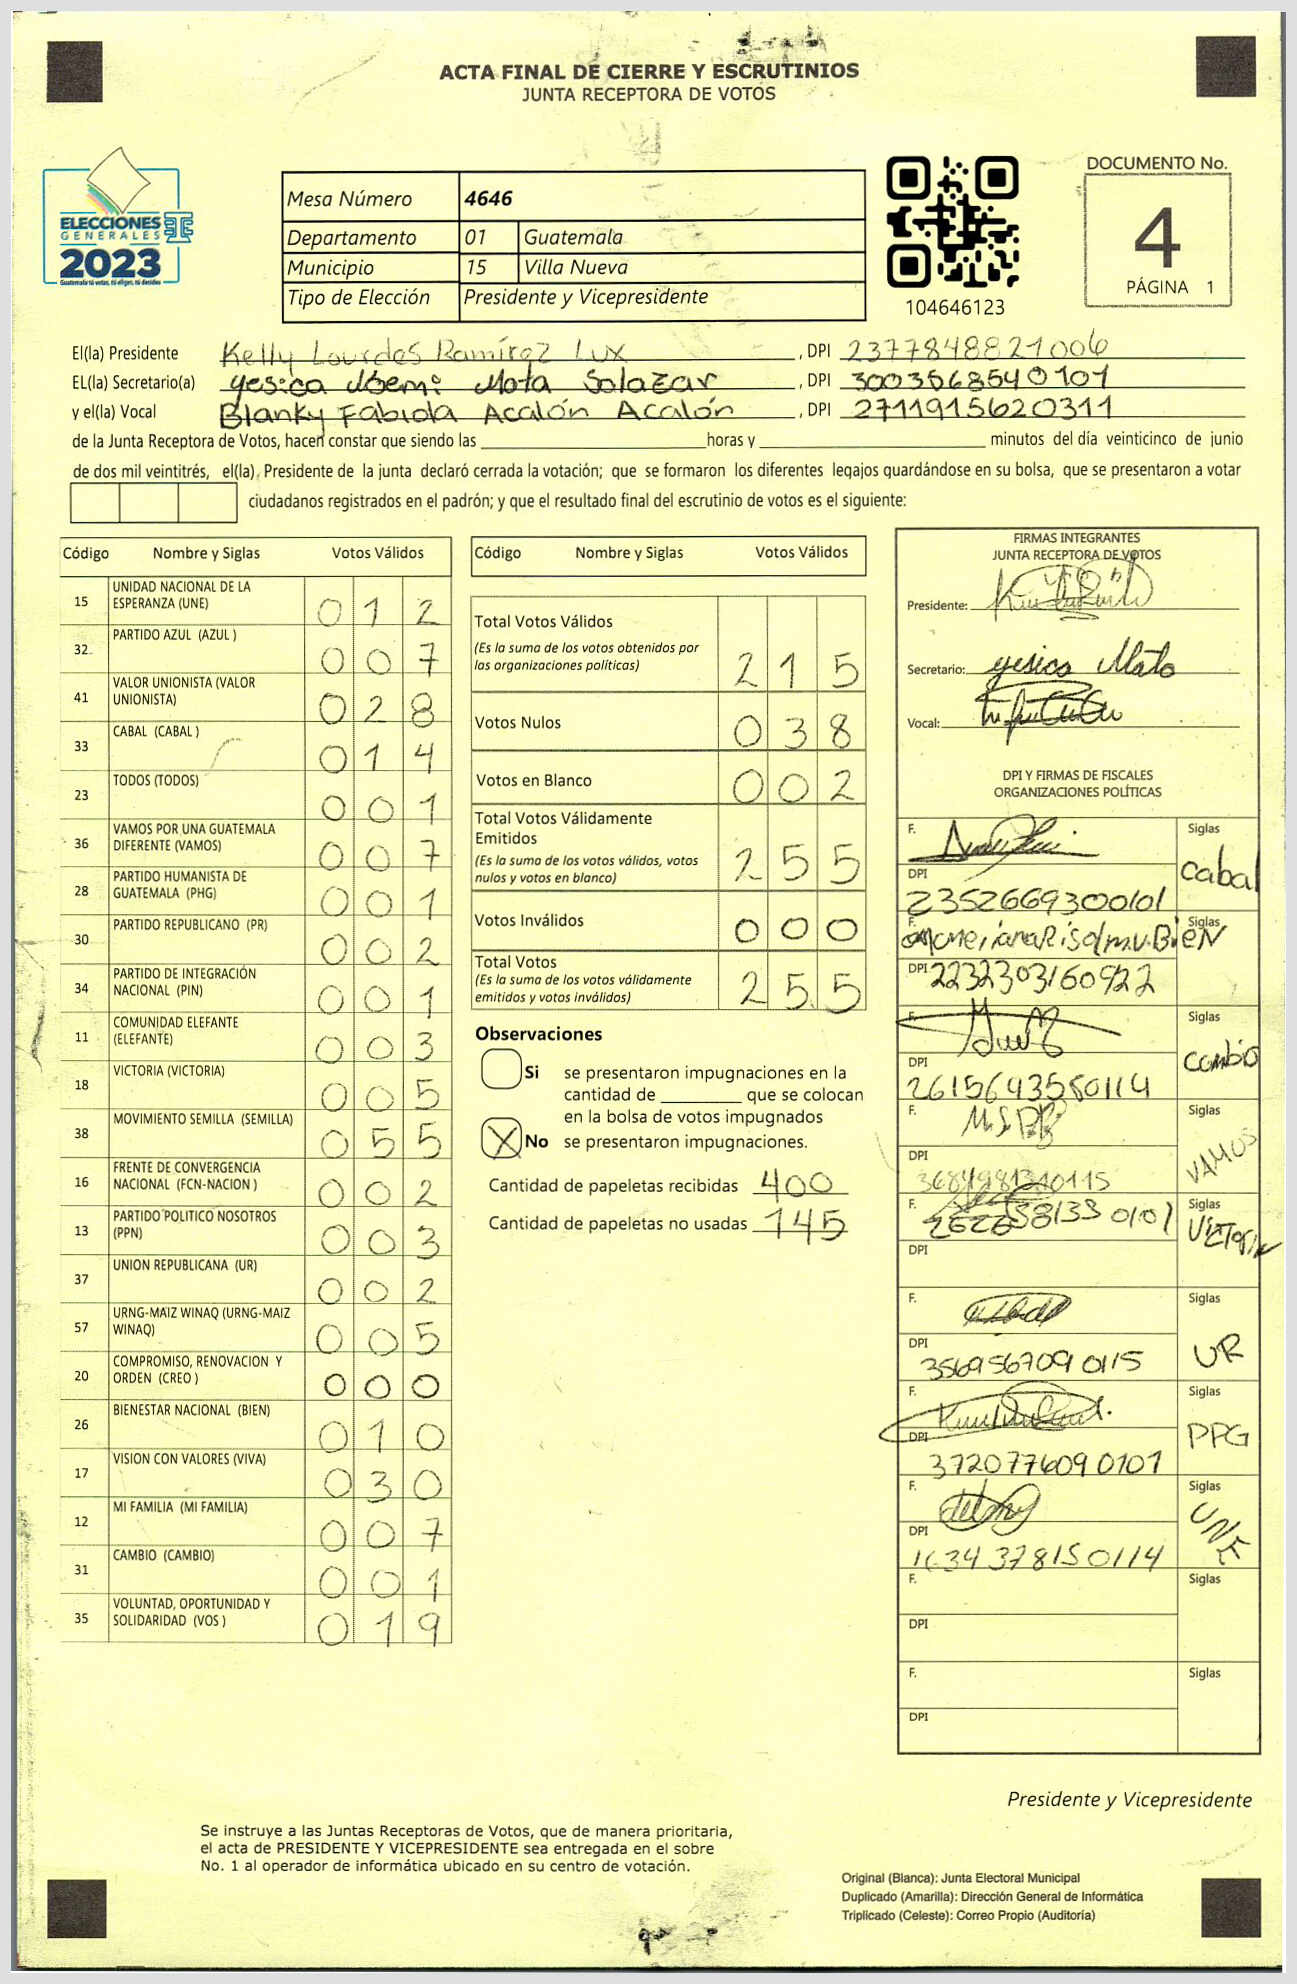 ACTA FINAL DE CIERRE Y ESCRUTINIOS
JUNTA RECEPTORA DE VOTOS
ELECCIONES
GENERALES
2023
Guatemala tú votas, tú eliges, tú decides
Mesa Número 4646
Departamento 01 Guatemala
Municipio 15 Villa Nueva
Tipo de Elección Presidente y Vicepresidente
104646123
DOCUMENTO No.
4
PÁGINA 1
El(la) Presidente Kelly Lourdes Ramírez Lux , DPI 2377848821006
EL(la) Secretario(a) Yesica Noemi Mota Salazar , DPI 3003568540101
y el(la) Vocal Blanky Fabiola Acalón Acalón , DPI 2711915620311
de la Junta Receptora de Votos, hacen constar que siendo las horas y minutos del día veinticinco de junio
de dos mil veintitrés, el(la) Presidente de la junta declaró cerrada la votación; que se formaron los diferentes legajos guardándose en su bolsa, que se presentaron a votar
ciudadanos registrados en el padrón; y que el resultado final del escrutinio de votos es el siguiente:
Código Nombre y Siglas Votos Válidos
15 UNIDAD NACIONAL DE LA
ESPERANZA (UNE) 0 1 2
32 PARTIDO AZUL (AZUL ) 0 0 7
41 VALOR UNIONISTA (VALOR
UNIONISTA) 0 2 8
33 CABAL (CABAL ) 0 1 4
23 TODOS (TODOS) 0 0 1
36 VAMOS POR UNA GUATEMALA
DIFERENTE (VAMOS) 0 0 7
28 PARTIDO HUMANISTA DE
GUATEMALA (PHG) 0 0 1
30 PARTIDO REPUBLICANO (PR) 0 0 2
34 PARTIDO DE INTEGRACIÓN
NACIONAL (PIN) 0 0 1
11 COMUNIDAD ELEFANTE
(ELEFANTE) 0 0 3
18 VICTORIA (VICTORIA) 0 0 5
38 MOVIMIENTO SEMILLA (SEMILLA) 0 5 5
16 FRENTE DE CONVERGENCIA
NACIONAL (FCN-NACION ) 0 0 2
13 PARTIDO POLITICO NOSOTROS
(PPN) 0 0 3
37 UNION REPUBLICANA (UR) 0 0 2
57 URNG-MAIZ WINAQ (URNG-MAIZ
WINAQ) 0 0 5
20 COMPROMISO, RENOVACION Y
ORDEN (CREO ) 0 0 0
26 BIENESTAR NACIONAL (BIEN) 0 1 0
17 VISION CON VALORES (VIVA) 0 3 0
12 MI FAMILIA (MI FAMILIA) 0 0 7
31 CAMBIO (CAMBIO) 0 0 1
35 VOLUNTAD, OPORTUNIDAD Y
SOLIDARIDAD (VOS ) 0 1 9
Código Nombre y Siglas Votos Válidos
Total Votos Válidos
(Es la suma de los votos obtenidos por
las organizaciones políticas) 2 1 5
Votos Nulos 0 3 8
Votos en Blanco 0 0 2
Total Votos Válidamente
Emitidos
(Es la suma de los votos válidos, votos
nulos y votos en blanco) 2 5 5
Votos Inválidos 0 0 0
Total Votos
(Es la suma de los votos válidamente
emitidos y votos inválidos) 2 5 5
Observaciones
Si se presentaron impugnaciones en la
cantidad de que se colocan
en la bolsa de votos impugnados
X No se presentaron impugnaciones.
Cantidad de papeletas recibidas 400
Cantidad de papeletas no usadas 145
FIRMAS INTEGRANTES
JUNTA RECEPTORA DE VOTOS
Presidente:
Secretario: Yesica Mota
Vocal:
DPI Y FIRMAS DE FISCALES
ORGANIZACIONES POLÍTICAS
F. Siglas
Cabal
DPI
2352669300101
F. Siglas
BIEN
DPI 2232303160922
F. Siglas
Cambio
DPI
2615643580114
F. Siglas
VAMOS
DPI
F. Siglas
Victoria
DPI
F. Siglas
UR
DPI
3569567090115
F. Siglas
PPG
DPI
3720776090101
F. Siglas
UNE
DPI
1634378150114
F. Siglas
DPI
F. Siglas
DPI
Presidente y Vicepresidente
Se instruye a las Juntas Receptoras de Votos, que de manera prioritaria,
el acta de PRESIDENTE Y VICEPRESIDENTE sea entregada en el sobre
No. 1 al operador de informática ubicado en su centro de votación.
Original (Blanca): Junta Electoral Municipal
Duplicado (Amarilla): Dirección General de Informática
Triplicado (Celeste): Correo Propio (Auditoría)